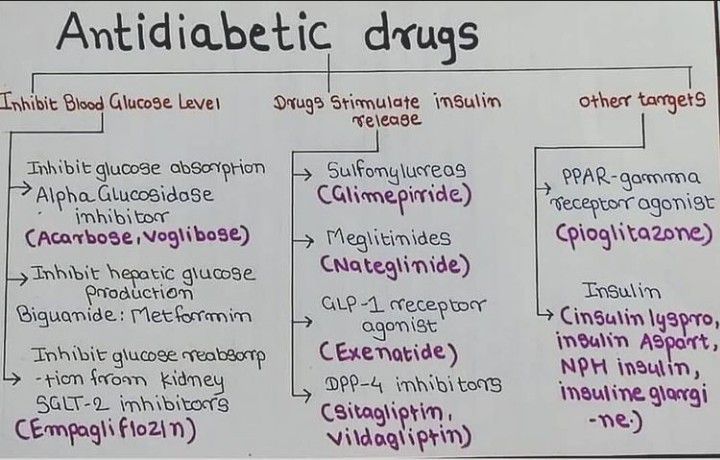 Antidiabetic drugs
Inhibit Blood Glucose Level
Inhibit glucose absorption
Alpha Glucosidase
inhibitor
(Acarbose, Voglibose)
Inhibit hepatic glucose
production
Biguanide: Metformin
Inhibit glucose reabsorp
-tion from kidney
SGLT-2 inhibitors
(Empagliflozin)
Drugs Stimulate insulin
release
Sulfonylureas
(Glimepiride)
Meglitinides
(Nateglinide)
GLP-1 receptor
agonist
(Exenatide)
DPP-4 inhibitors
(Sitagliptin,
Vildagliptin)
other targets
PPAR-gamma
receptor agonist
(pioglitazone)
Insulin
Cinsulin lyspro,
insulin Aspart,
NPH insulin,
insuline glargi
-ne.)